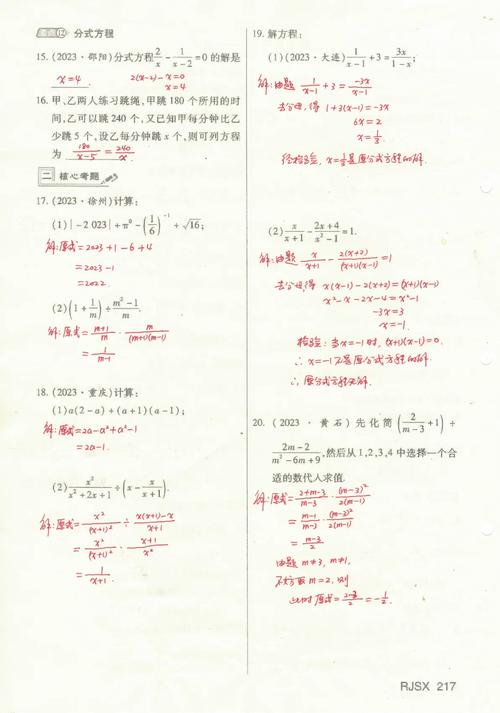 考点12 分式方程
15. (2023·邵阳)分式方程 2/x - 1/(x-2) = 0 的解是
x=4 . 2(x-2)-x=0
x=4
16. 甲、乙两人练习跳绳,甲跳 180 个所用的时
间,乙可以跳 240 个,又已知甲每分钟比乙
少跳 5 个,设乙每分钟跳 x 个,则可列方程
为 180/(x-5) = 240/x .
二 核心考题
17. (2023·徐州)计算:
(1)|-2 023|+π⁰-(1/6)⁻¹+√16;
解:原式=2023+1-6+4
=2023-1
=2022.
(2)(1+1/m)÷(m²-1)/m.
解:原式=(m+1)/m · m/((m+1)(m-1))
=1/(m-1)
18. (2023·重庆)计算:
(1)a(2-a)+(a+1)(a-1);
解:原式=2a-a²+a²-1
=2a-1.
(2)x²/(x²+2x+1)÷(x-x/(x+1)).
解:原式=x²/(x+1)²÷(x(x+1)-x)/(x+1)
=x²/(x+1)² · (x+1)/x²
=1/(x+1).
19. 解方程:
(1)(2023·大连)1/(x-1)+3=3x/(1-x);
解:由题 1/(x-1)+3=-3x/(x-1)
去分母,得 1+3(x-1)=-3x
6x=2
x=1/3.
经检验, x=1/3是原分式方程的解.
(2)x/(x+1)-(2x+4)/(x²-1)=1.
解:由题 x/(x+1)-2(x+2)/((x+1)(x-1))=1
去分母得 x(x-1)-2(x+2)=(x+1)(x-1)
x²-x-2x-4=x²-1
-3x=3
x=-1.
检验:当x=-1时, (x+1)(x-1)=0.
∴x=-1不是原分式方程的解.
∴原分式方程无解.
20. (2023·黄石)先化简(2/(m-3)+1)÷
(2m-2)/(m²-6m+9),然后从 1,2,3,4 中选择一个合
适的数代入求值.
解:原式=(2+m-3)/(m-3) · (m-3)²/(2(m-1))
=(m-1)/(m-3) · (m-3)²/(2(m-1))
=(m-3)/2
由题 m≠3, m≠1,
取m=2, 则
此时 原式=(2-3)/2=-1/2.
RJSX 217